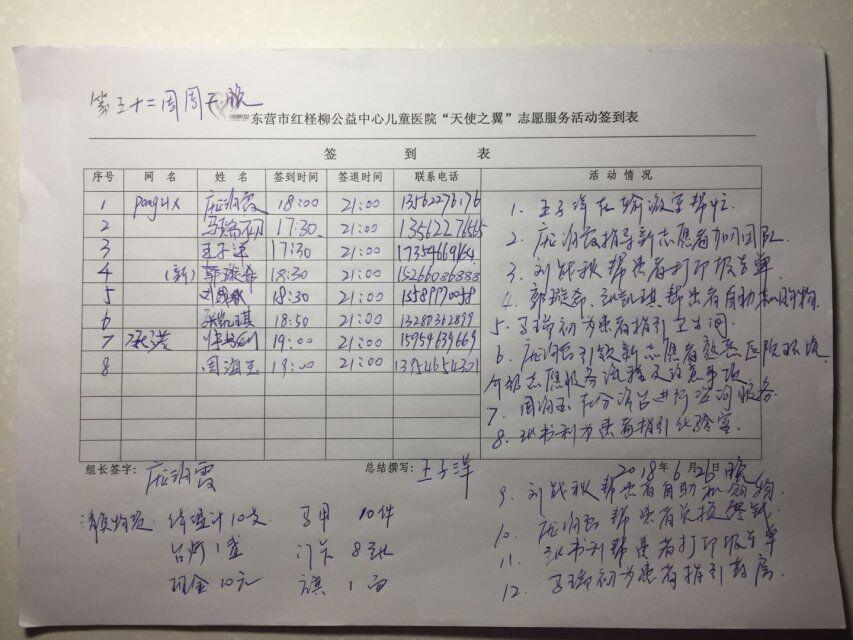 第三十二周周天晚
东营市红柽柳公益中心儿童医院“天使之翼”志愿服务活动签到表
签 到 表
序号 网 名 姓 名 签到时间 签退时间 联系电话 活 动 情 况
1 庞海霞 18:00 21:00 13562276176
2 马瑞初 17:30 21:00
3 王子洋 17:30 21:00
4 (新) 郭璇希 18:30 21:00 15266086888
5 刘战秋 18:30 21:00
6 张凯琪 18:50 21:00 13280362899
7 19:00 21:00 15954639669
8 周海玉 19:00 21:00 13954654301
1. 王子洋在输液室帮忙
2. 庞海霞指导新志愿者加入团队
3. 刘战秋帮患者打印报告单
4. 郭璇希、张凯琪帮患者自助机购物
5. 马瑞初为患者指引卫生间
6. 庞海霞引领新志愿者熟悉医院环境
介绍志愿服务流程及注意事项
7. 周海玉在分诊台进行咨询服务
8. 张书利为患者指引化验室
组长签字: 庞海霞 总结撰写: 王子洋 2018年6月26日晚
9. 刘战秋帮患者自助机购物
10. 庞海霞帮患者兑换零钱
11. 张书利帮患者打印报告单
12. 马瑞初为患者指引药房
清点物资: 体温计10支 马甲 10件
台灯1盏 门卡 8张
现金10元 旗 1面